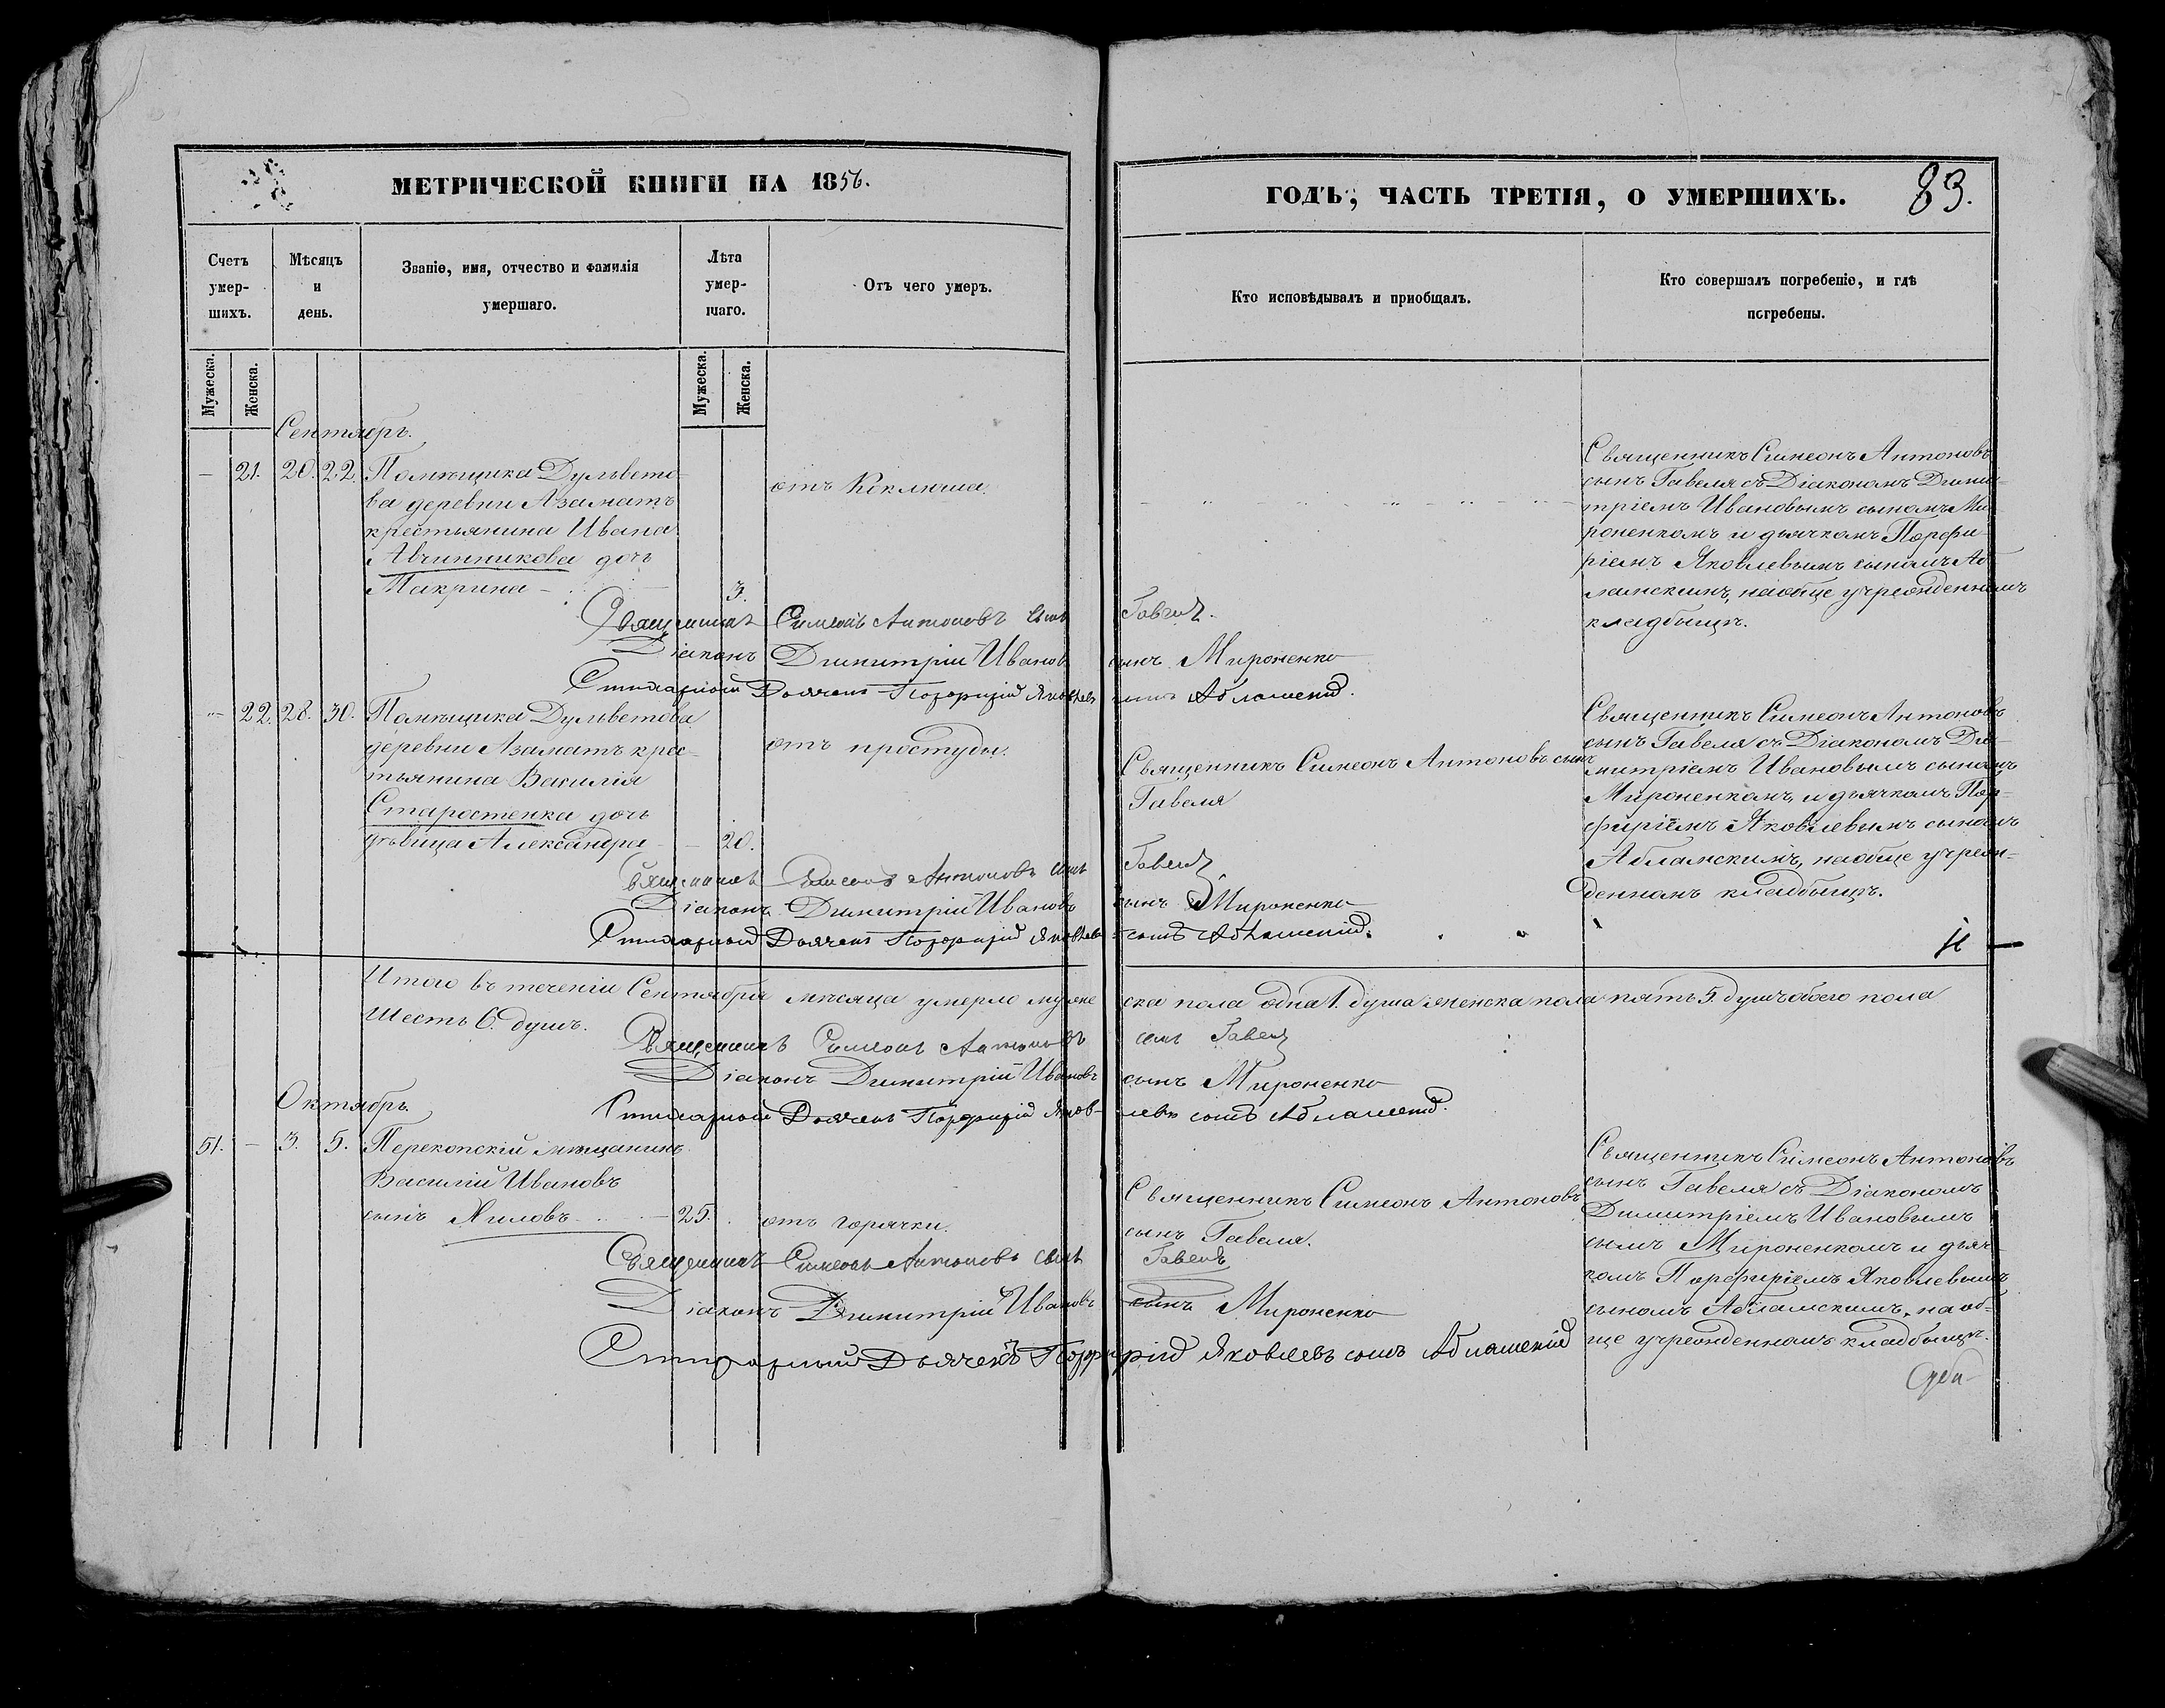 МЕТРИЧЕСКОЙ КНИГИ НА 1856.
ГОДЪ, ЧАСТЬ ТРЕТІЯ, О УМЕРШИХЪ.
83.
Счетъ
умер-
шихъ.
Мѣсяцъ
и
день.
Званіе, имя, отчество и фамилія
умершаго.
Лѣта
умер-
шаго.
Отъ чего умеръ.
Кто исповѣдывалъ и приобщалъ.
Кто совершалъ погребеніе, и гдѣ
погребены.
Мужеска.
Женска.
Мужеска.
Женска.
Сентябръ.
— 21. 20. 22. Помѣщика Дульвето
ва деревни Азаматъ
крестьянина Ивана
Авчинникова дочь
Макрина — 3.
отъ Коклюша.
Священникъ Симеонъ Антоновъ
сынъ Гавеля съ Діакономъ Дими-
тріемъ Ивановымъ сыномъ Ми
роненкомъ и дьячкомъ Порфи-
ріемъ Яковлевымъ сыномъ Аб
ламскимъ, наобще учрежденномъ
кладбищѣ.
Священникъ Симеонъ Антоновъ сынъ Гавеля.
Діаконъ Димитрій Ивановъ сынъ Мироненко
Стихарный Дьячекъ Порфирій Яковлевъ сынъ Абламскій.
— 22. 28. 30. Помѣщика Дульветова
деревни Азаматъ крес-
тьянина Василія
Старостенка дочь
дѣвица Александра — 20.
отъ простуды.
Священникъ Симеонъ Антоновъ сынъ
Гавеля
Священникъ Симеонъ Антоновъ
сынъ Гавеля съ Діакономъ Ди-
митріемъ Ивановымъ сыномъ
Мироненкомъ, и дьячкомъ Пор-
фиріемъ Яковлевымъ сыномъ
Абламскимъ, наобще учреж-
денномъ кладбищѣ.
Священникъ Симеонъ Антоновъ сынъ Гавеля
Діаконъ Димитрій Ивановъ сынъ Мироненко
Стихарный Дьячекъ Порфирій Яковлевъ сынъ Абламскій.
Итого въ теченіи Сентября мѣсяца умерло муже ска пола одна 1. душа женска пола пять 5. душъ обоего пола
шесть 6. душъ.
Священникъ Симеонъ Антоновъ сынъ Гавеля
Діаконъ Димитрій Ивановъ сынъ Мироненко
Стихарный Дьячекъ Порфирій Яков- левъ сынъ Абламскій.
Октябръ.
51. — 3. 5. Перекопскій мѣщанинъ
Василій Ивановъ
сынъ Хиловъ — 25.
отъ горячки.
Священникъ Симеонъ Антоновъ
сынъ Гавеля.
Священникъ Симеонъ Антоновъ
сынъ Гавеля съ Діакономъ
Димитріемъ Ивановымъ
сыномъ Мироненкомъ и дьяч
комъ Порфиріемъ Яковлевымъ
сыномъ Абламскимъ, на об-
ще учрежденномъ кладбищѣ.
Священникъ Симеонъ Антоновъ сынъ Гавеля
Діаконъ Димитрій Ивановъ сынъ Мироненко
Стихарный Дьячекъ Порфирій Яковлевъ сынъ Абламскій